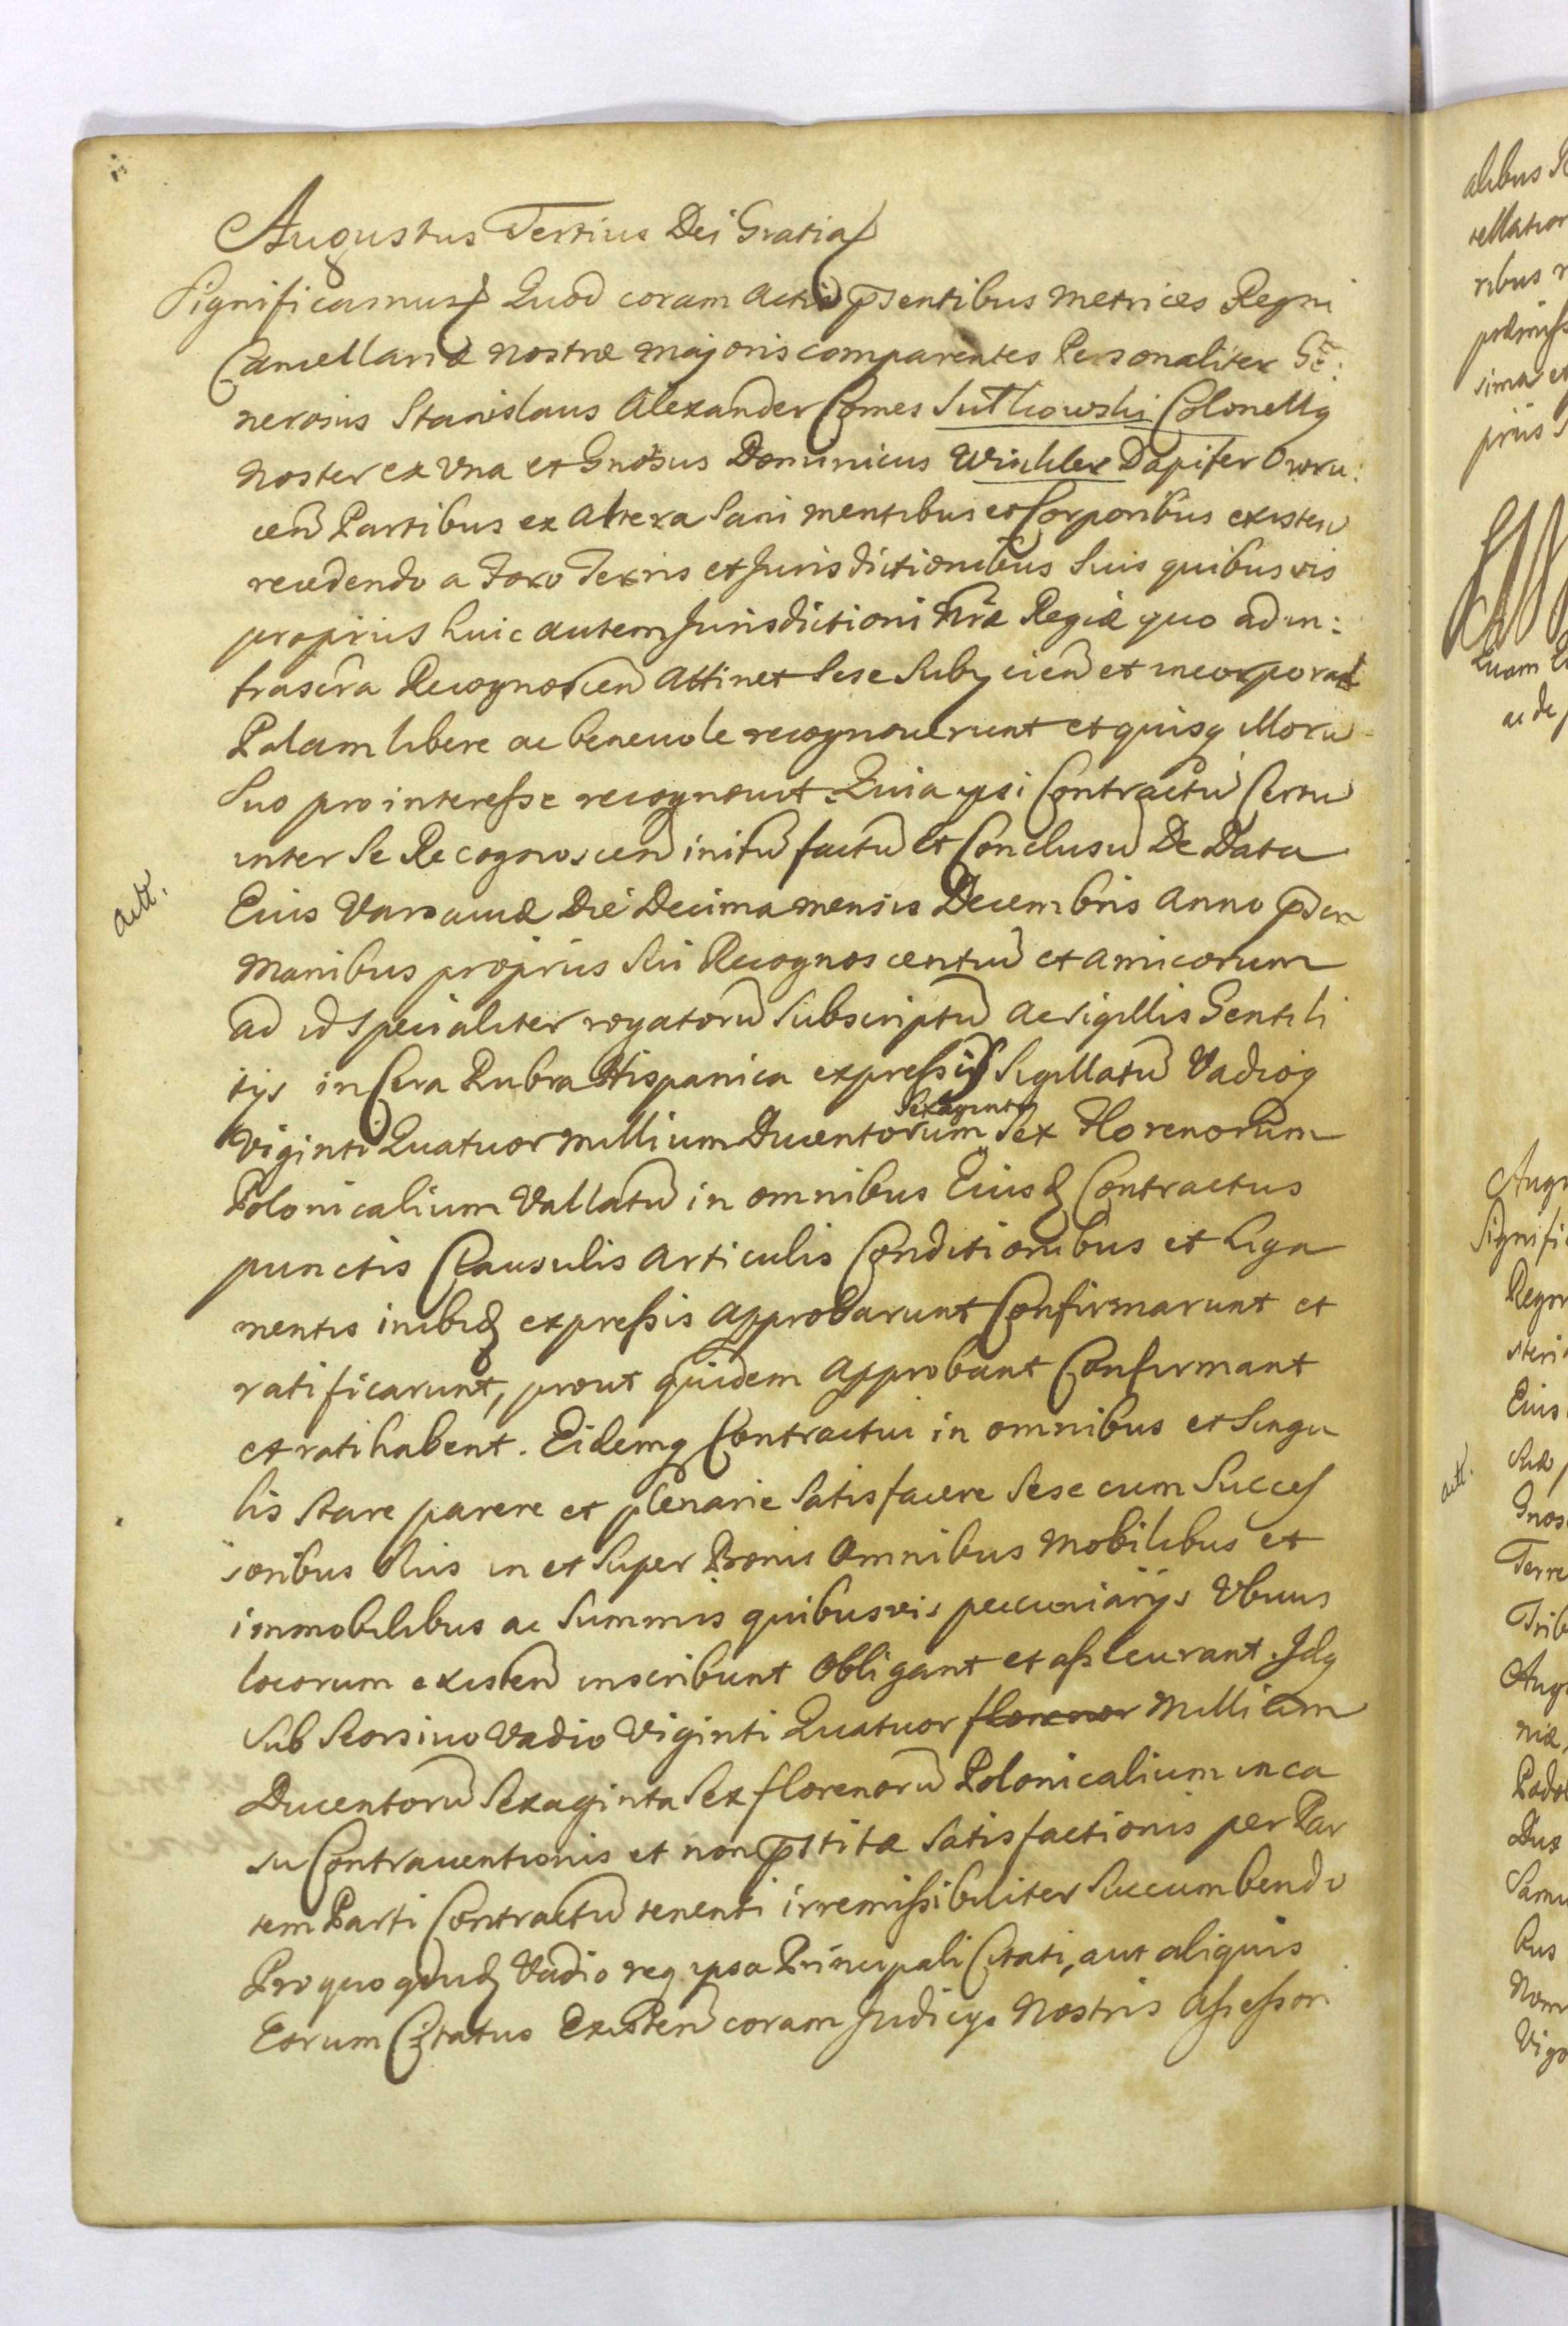 Augustus Tertius Dei Gratia
Significamus Quod coram Actis p̄sentibus Metrices Regni
Cancellariæ nostræ majoris comparentes Personaliter Ge:
nerosus Stanislaus Alexander Comes Sułkowski Colonellq
Noster ex Una et Gn̄osus Dominicus Winkler Dapifer Owru:
cen̄ Partibus ex Altera Sani mentibus et Corporibus existen̄
recedendo a Foro Terris et Jurisdictionibus Suis quibusvis
proprijs huic autem Jurisdictioni Nr̄æ Regiæ quo ad in:
frascr̄a Recognoscen̄ Attinet Sese Subjicien̄ et incorporan̄
Palam libere ac benevole recognoverunt et quisq illorū
Suo pro interesse recognovit. Quia ipsi Contractū Certū
inter Se Recognoscen̄ initū factū et Conclusū De Data
Eius Varsaviæ Die Decima mensis Decembris Anno p̄sen
Manibus proprijs Sui Recognoscentiū et amicorum
ad id specialiter rogatorū Subscriptū ac sigillis Gentili
tijs in Cera Rubra Hispanica expressis Sigillatū Vadioq
Viginti Quatuor Millium Ducentorum Sexaginta Sex Florenorum
Polonicalium Vallatū in omnibus Eiusd Contractus
punctis Clausulis Articulis Conditionibus et Liga
mentis inibid expressis approbarunt Confirmarunt et
ratificarunt, prout quidem approbant Confirmant
et ratihabent. Eidemq Contractui in omnibus et Singu
lis Stare parere et plenarie Satisfacere Sese cum Succes
soribus Suis in et Super Bonis Omnibus Mobilibus et
immobilibus ac Summis quibusvis pecuniarijs Ubivis
locorum existen̄ inscribunt Obligant et assecurant. Idq
Sub Seorsivo Vadio Viginti Quatuor florenor Millium
Ducentorū Sexaginta Sex florenorū Polonicalium in ca
su Contraventionis et non p̄stitæ Satisfactionis per Par
tem Parti Contractū tenenti irremissibiliter Succumbendo
Pro quo quid Vadio req ipsa Principali Citati, aut aliquis
Eorum Citatus Existen̄ coram Judicijs Nostris Assessori
Actt.